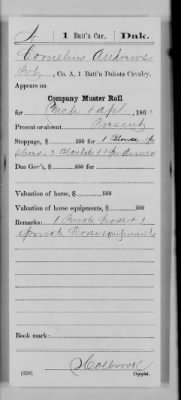 A | 1 Batt'n Cav. | Dak.
Cornelius Andrews
Pvt, Co. A, 1 Batt'n Dakota Cavalry.
Appears on
Company Muster Roll
for Mch & Apl, 186
Present or absent Present
Stoppage, $ 100 for 1 Blouse
shoes 2 Blankets & 1 pr
Due Gov't, $ 100
Valuation of horse, $ 100
Valuation of horse equipments, $ 100
Remarks: 1 Private Horse & 1
private horse equipments
Book mark:
Holbrook
(359) Copyist.